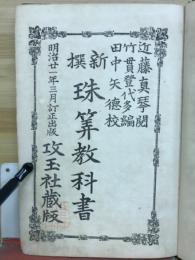 近藤真琴閲
竹貫登代多編
田中矢徳校
新撰珠算教科書
明治廿一年三月訂正出版
攻玉社蔵版